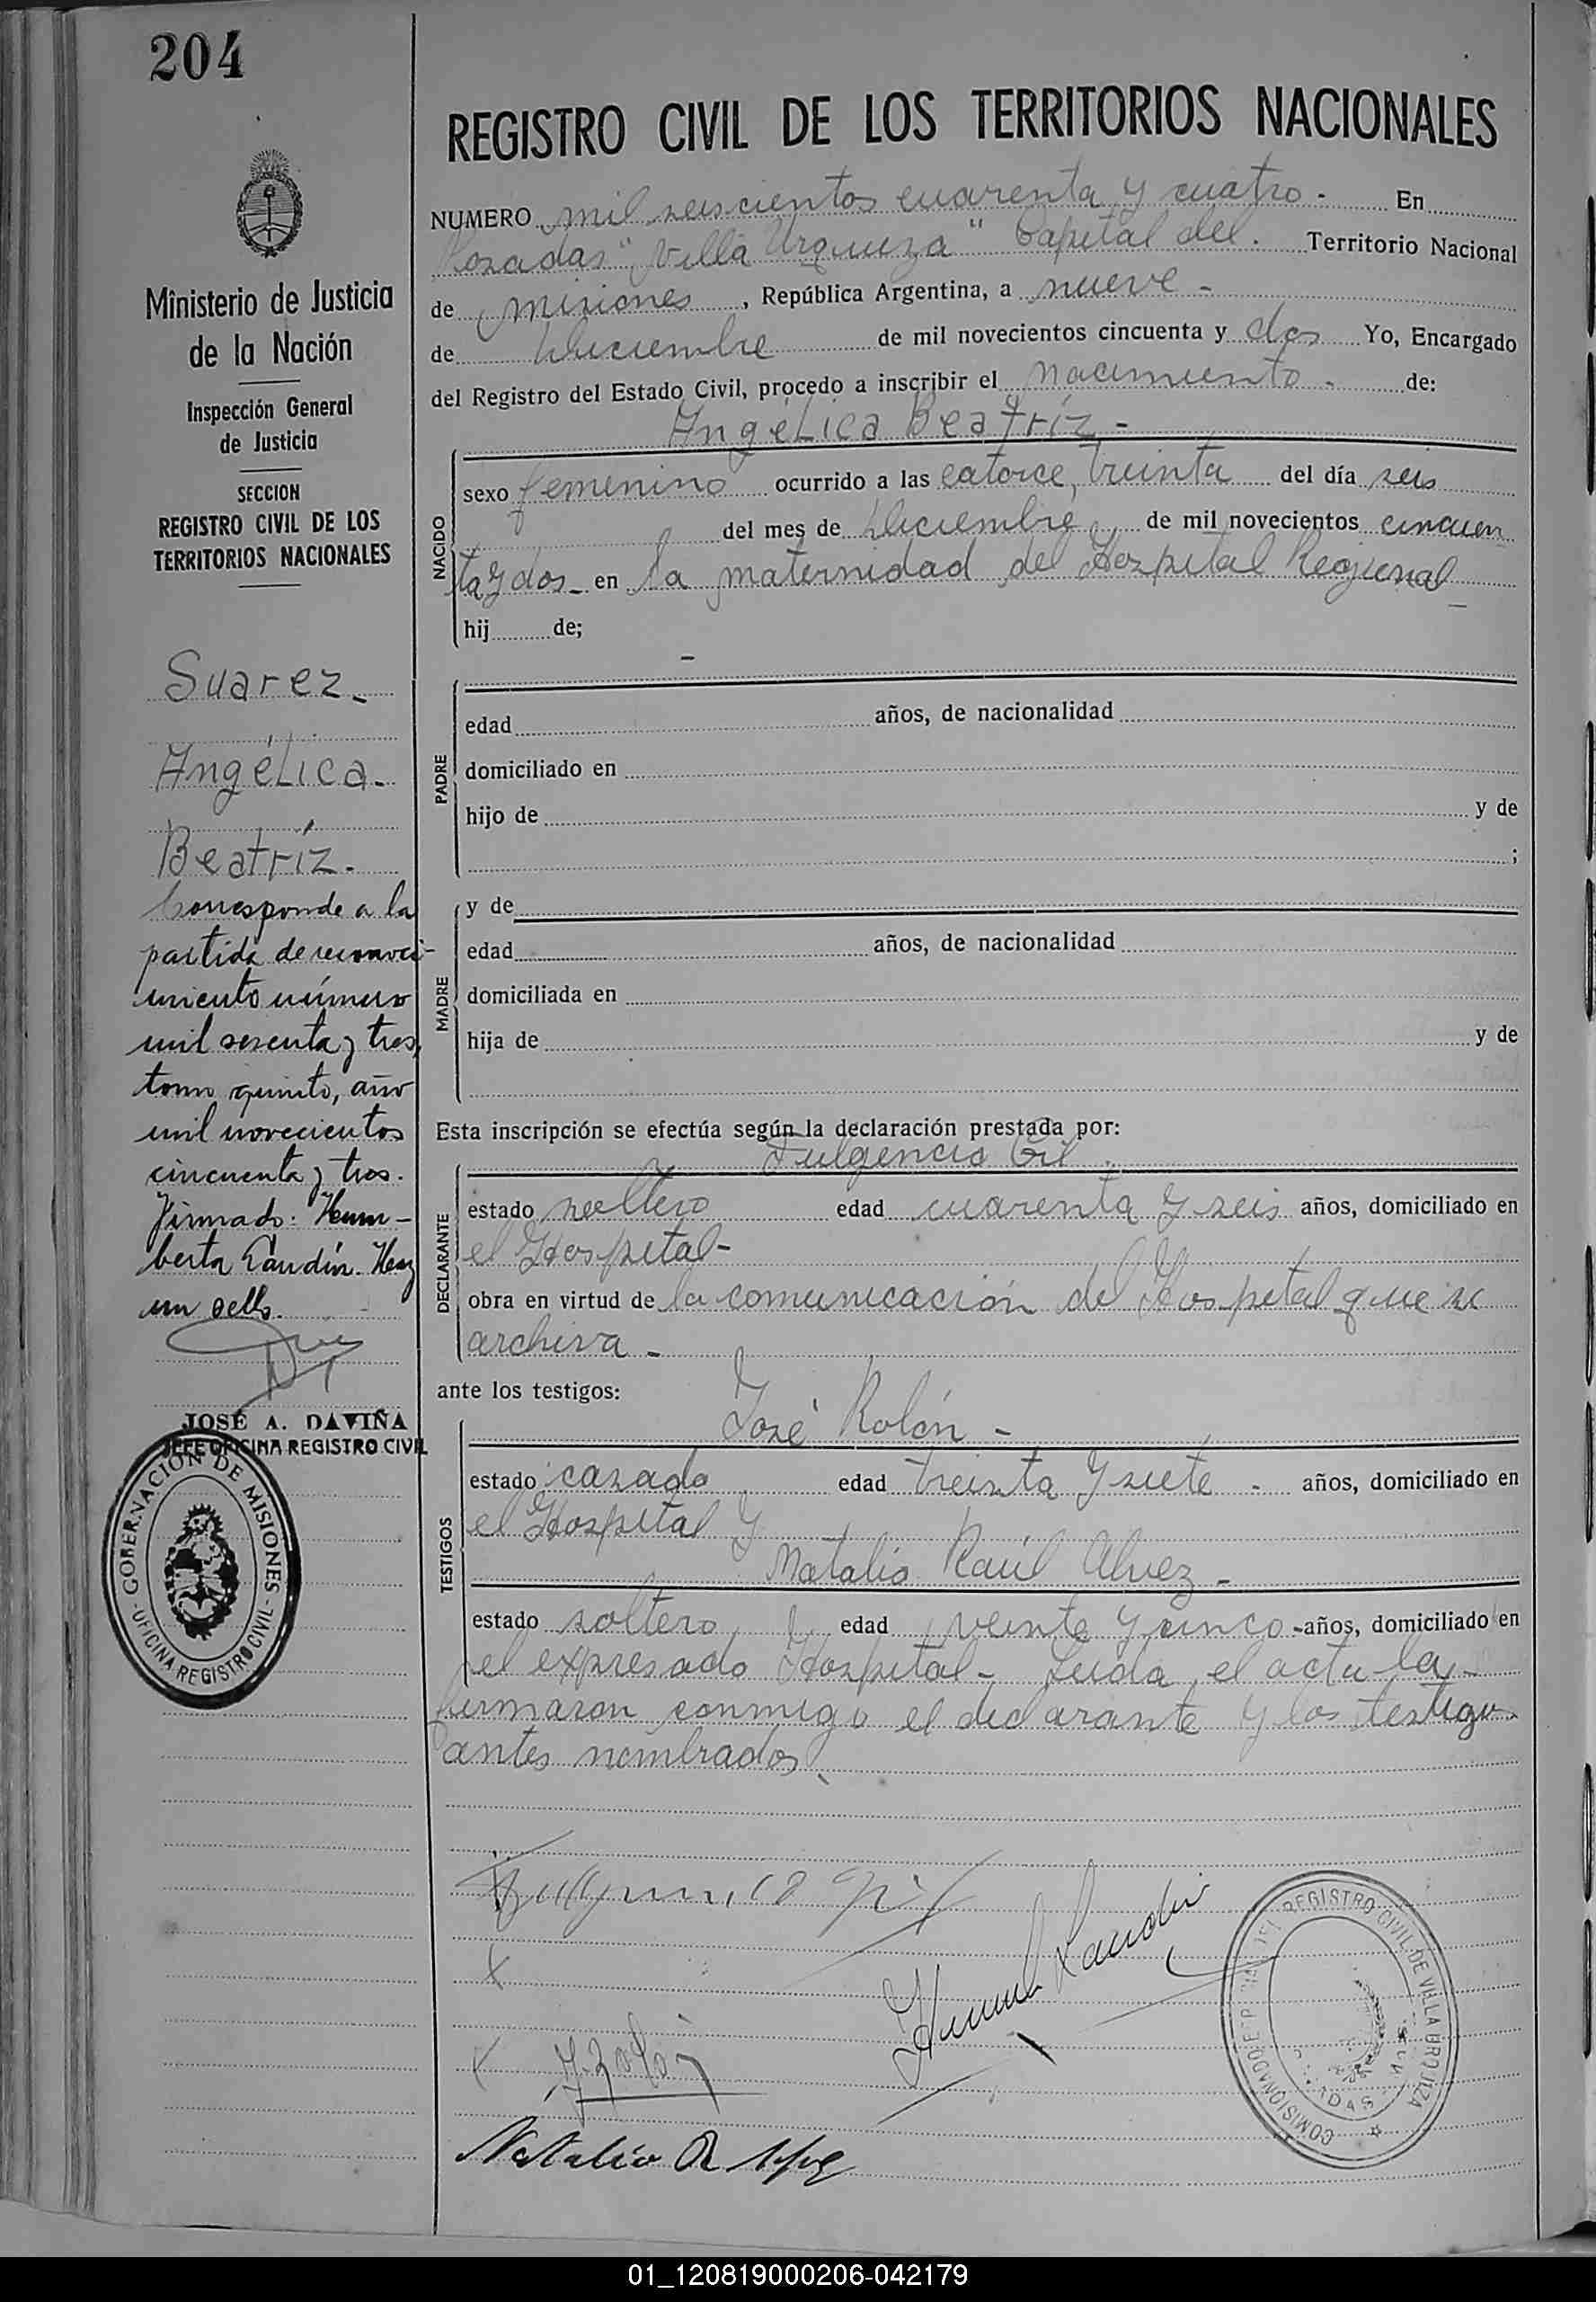 204
Ministerio de Justicia
de la Nación
Inspección General
de Justicia
SECCION
REGISTRO CIVIL DE LOS
TERRITORIOS NACIONALES
Suarez.
Angélica.
Beatríz.
Corresponde a la
partida de reconoci-
miento número
mil sesenta y tres,
tomo quinto, año
mil novecientos
cincuenta y tres.
Firmado: Hum-
berta Landín. Hay
un sello.
JOSÉ A. DAVIÑA
JEFE OFICINA REGISTRO CIVIL
GOBERNACION DE MISIONES - OFICINA REGISTRO CIVIL -
REGISTRO CIVIL DE LOS TERRITORIOS NACIONALES
NUMERO mil seiscientos cuarenta y cuatro - En
Posadas "Villa Urquiza" Capital del. Territorio Nacional
de Misiones, República Argentina, a nueve -
de Diciembre de mil novecientos cincuenta y dos Yo, Encargado
del Registro del Estado Civil, procedo a inscribir el nacimiento - de:
Angélica Beatríz -
NACIDO
sexo femenino ocurrido a las catorce, treinta del día seis
del mes de Diciembre, de mil novecientos cincuen
ta y dos - en la maternidad del Hospital Regional
hij de;
-
PADRE
edad años, de nacionalidad
domiciliado en
hijo de y de
;
MADRE
y de
edad años, de nacionalidad
domiciliada en
hija de y de
Esta inscripción se efectúa según la declaración prestada por:
Fulgencio Gil.
DECLARANTE
estado soltero edad cuarenta y seis años, domiciliado en
el Hospital -
obra en virtud de la comunicación del Hospital que se
archiva -
ante los testigos:
José Rolón -
TESTIGOS
estado casado edad treinta y siete - años, domiciliado en
el Hospital y
Natalio Raúl Alvez -
estado soltero, y edad veinte y cinco - años, domiciliado en
el expresado Hospital - Leida el acta la
firmaron conmigo el declarante y los testigos
antes nombrados.
Natalio R
REGISTRO CIVIL DE VILLA URQUIZA
01_120819000206-042179